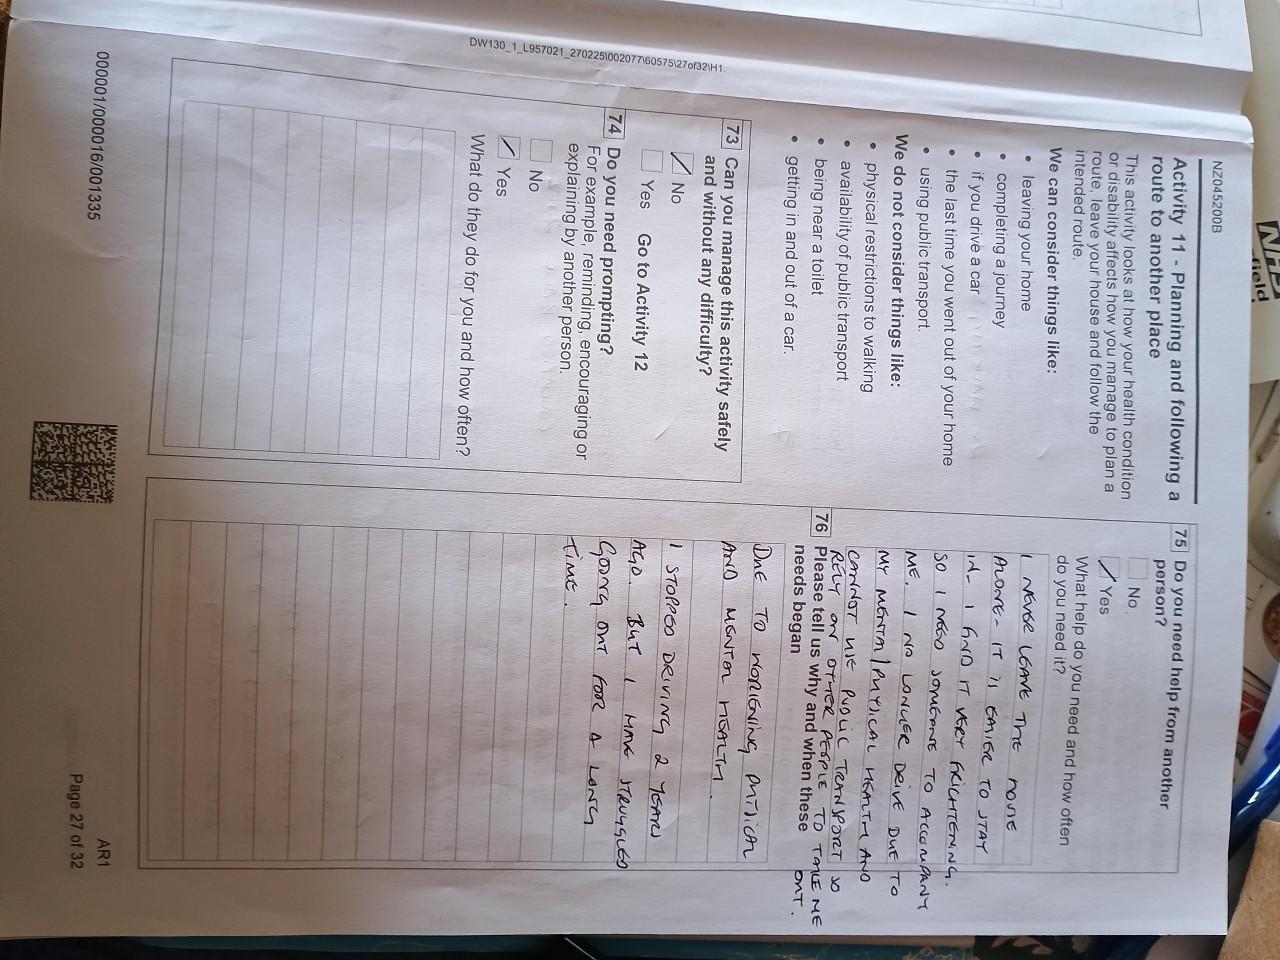 NZ045200B
Activity 11 - Planning and following a
route to another place
This activity looks at how your health condition
or disability affects how you manage to plan a
route, leave your house and follow the
intended route.
We can consider things like:
• leaving your home
• completing a journey
• if you drive a car
• the last time you went out of your home
• using public transport.
We do not consider things like:
• physical restrictions to walking
• availability of public transport
• being near a toilet
• getting in and out of a car.
73 Can you manage this activity safely
and without any difficulty?
No
Yes Go to Activity 12
74 Do you need prompting?
For example, reminding, encouraging or
explaining by another person.
No
Yes
What do they do for you and how often?
75 Do you need help from another
person?
No
Yes
What help do you need and how often
do you need it?
I NEVER LEAVE THE HOUSE
ALONE - IT IS EASIER TO STAY
IN - I FIND IT VERY FRIGHTENING.
SO I NEED SOMEONE TO ACCOMPANY
ME. I NO LONGER DRIVE DUE TO
MY MENTAL/PHYSICAL HEALTH AND
CANNOT USE PUBLIC TRANSPORT SO
RELY ON OTHER PEOPLE TO TAKE ME
OUT.
76 Please tell us why and when these
needs began
DUE TO WORSENING PHYSICAL
AND MENTAL HEALTH.
I STOPPED DRIVING 2 YEARS
AGO. BUT I HAVE STRUGGLED
GOING OUT FOR A LONG
TIME.
AR1
Page 27 of 32
000001/000016/001335
DW130_1_L957021_270225\002077\60575\27of32\H1
NHS
field